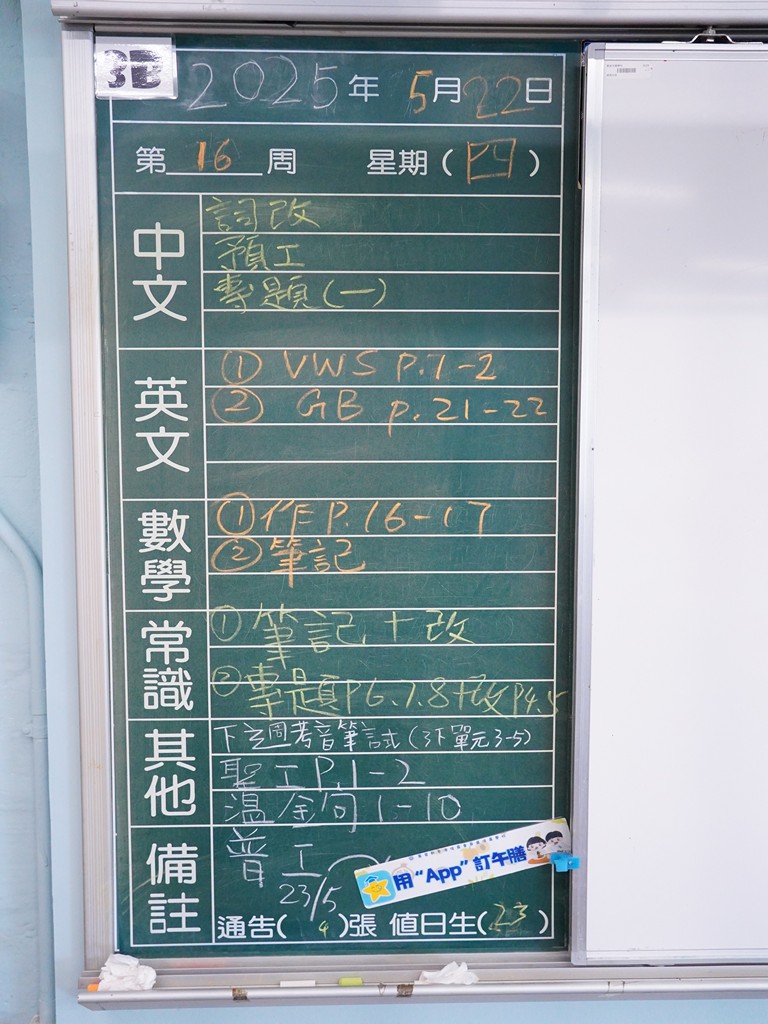 3B
2025年 5月22日
第 16 周 星期(四)
中文
詞改
預工
專題(一)
英文
① VWS P.7-2
② GB p.21-22
數學
① 作P.16-17
② 筆記
常識
① 筆記+改
② 專題P6.7.8+改P4.5
其他
下主周考音筆試(3下單元3-5)
聖工P.1-2
溫金句1-10
備註
普工
23/5
用“App”訂午膳
通告(4)張 值日生(23)